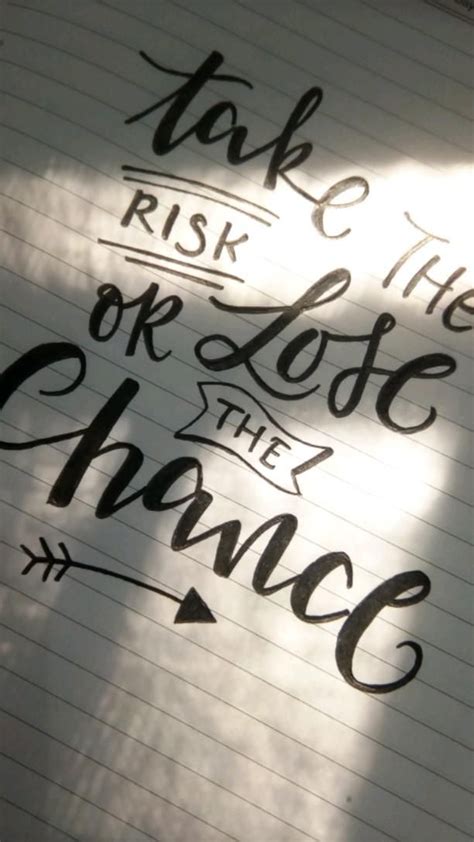 take THE
RISK
OR Lose
THE
Chance